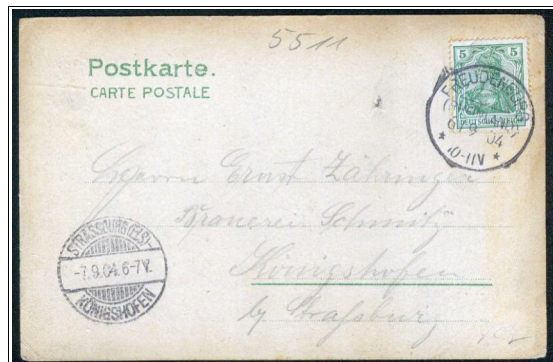 5511
Postkarte.
CARTE POSTALE
5
5
DEUTSCHES REICH
6/9 04
10-11V
Herrn Ernst Zähringer
Brauerei Schmitz
Königshofen
by Straßburg
STRASSBURG (ELS)-
-7.9.04.6-7V.
KÖNIGSHOFEN